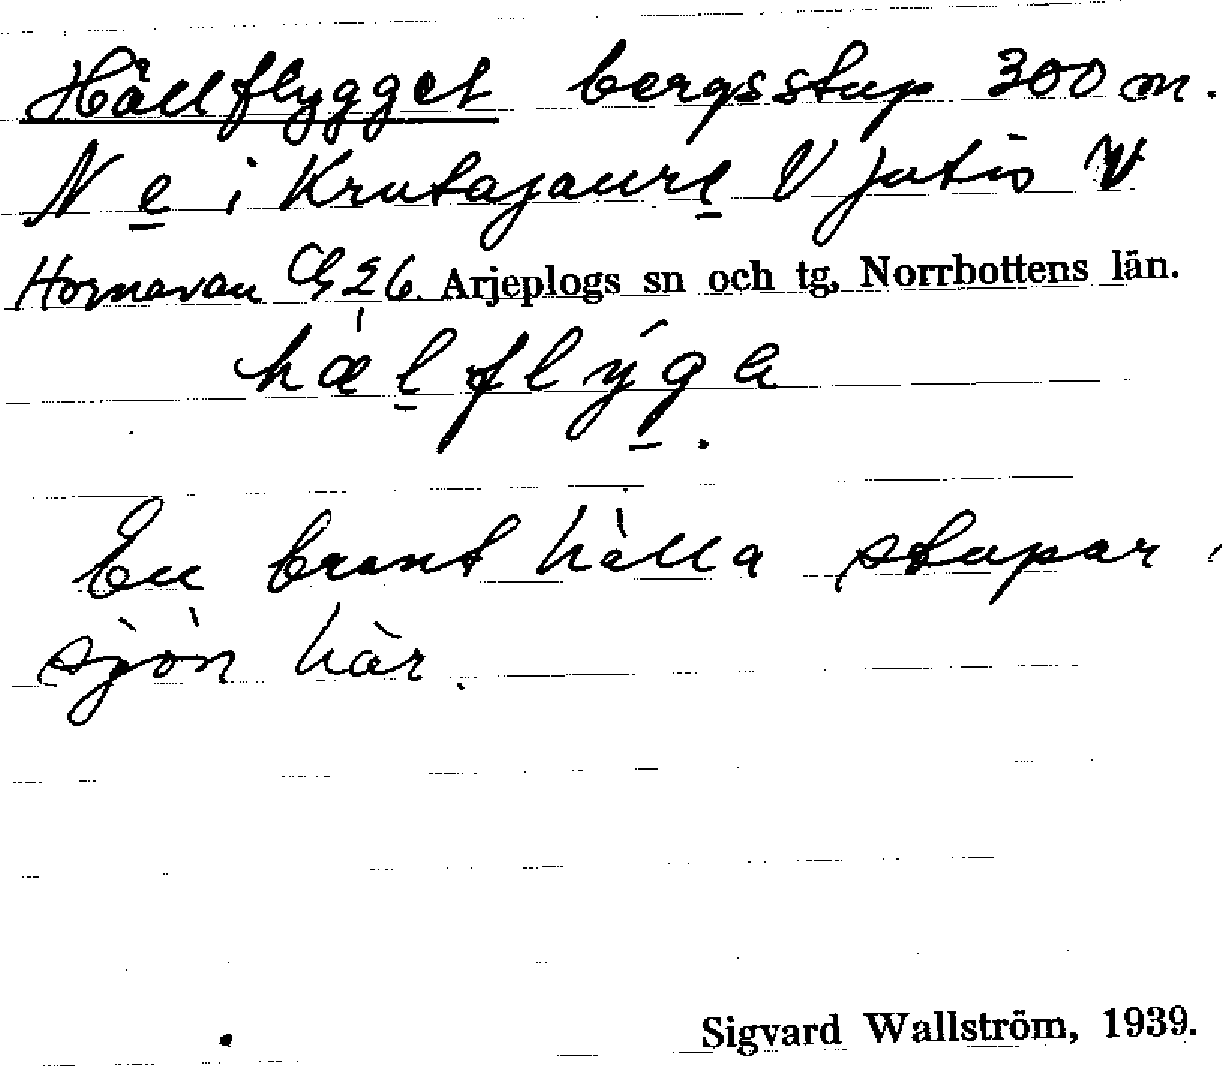 Hällflygget bergsstup 300 m.
N e i Krutajaure V Jutis V
Hornavan Arjeplogs sn och tg, Norrbottens län.
hælflýga.
En brant hälla stupar i
sjön här.
Sigvard Wallström, 1939.